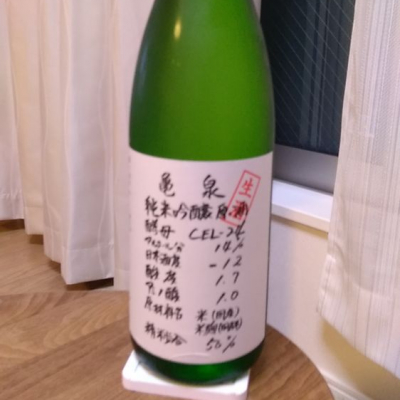 亀泉
純米吟醸原酒
生酒
酵母 CEL-24
アルコール分 14%
日本酒度 -12
酸度 1.7
アミノ酸 1.0
原材料名 米(国産)
米麹(国産米)
精米歩合 50%